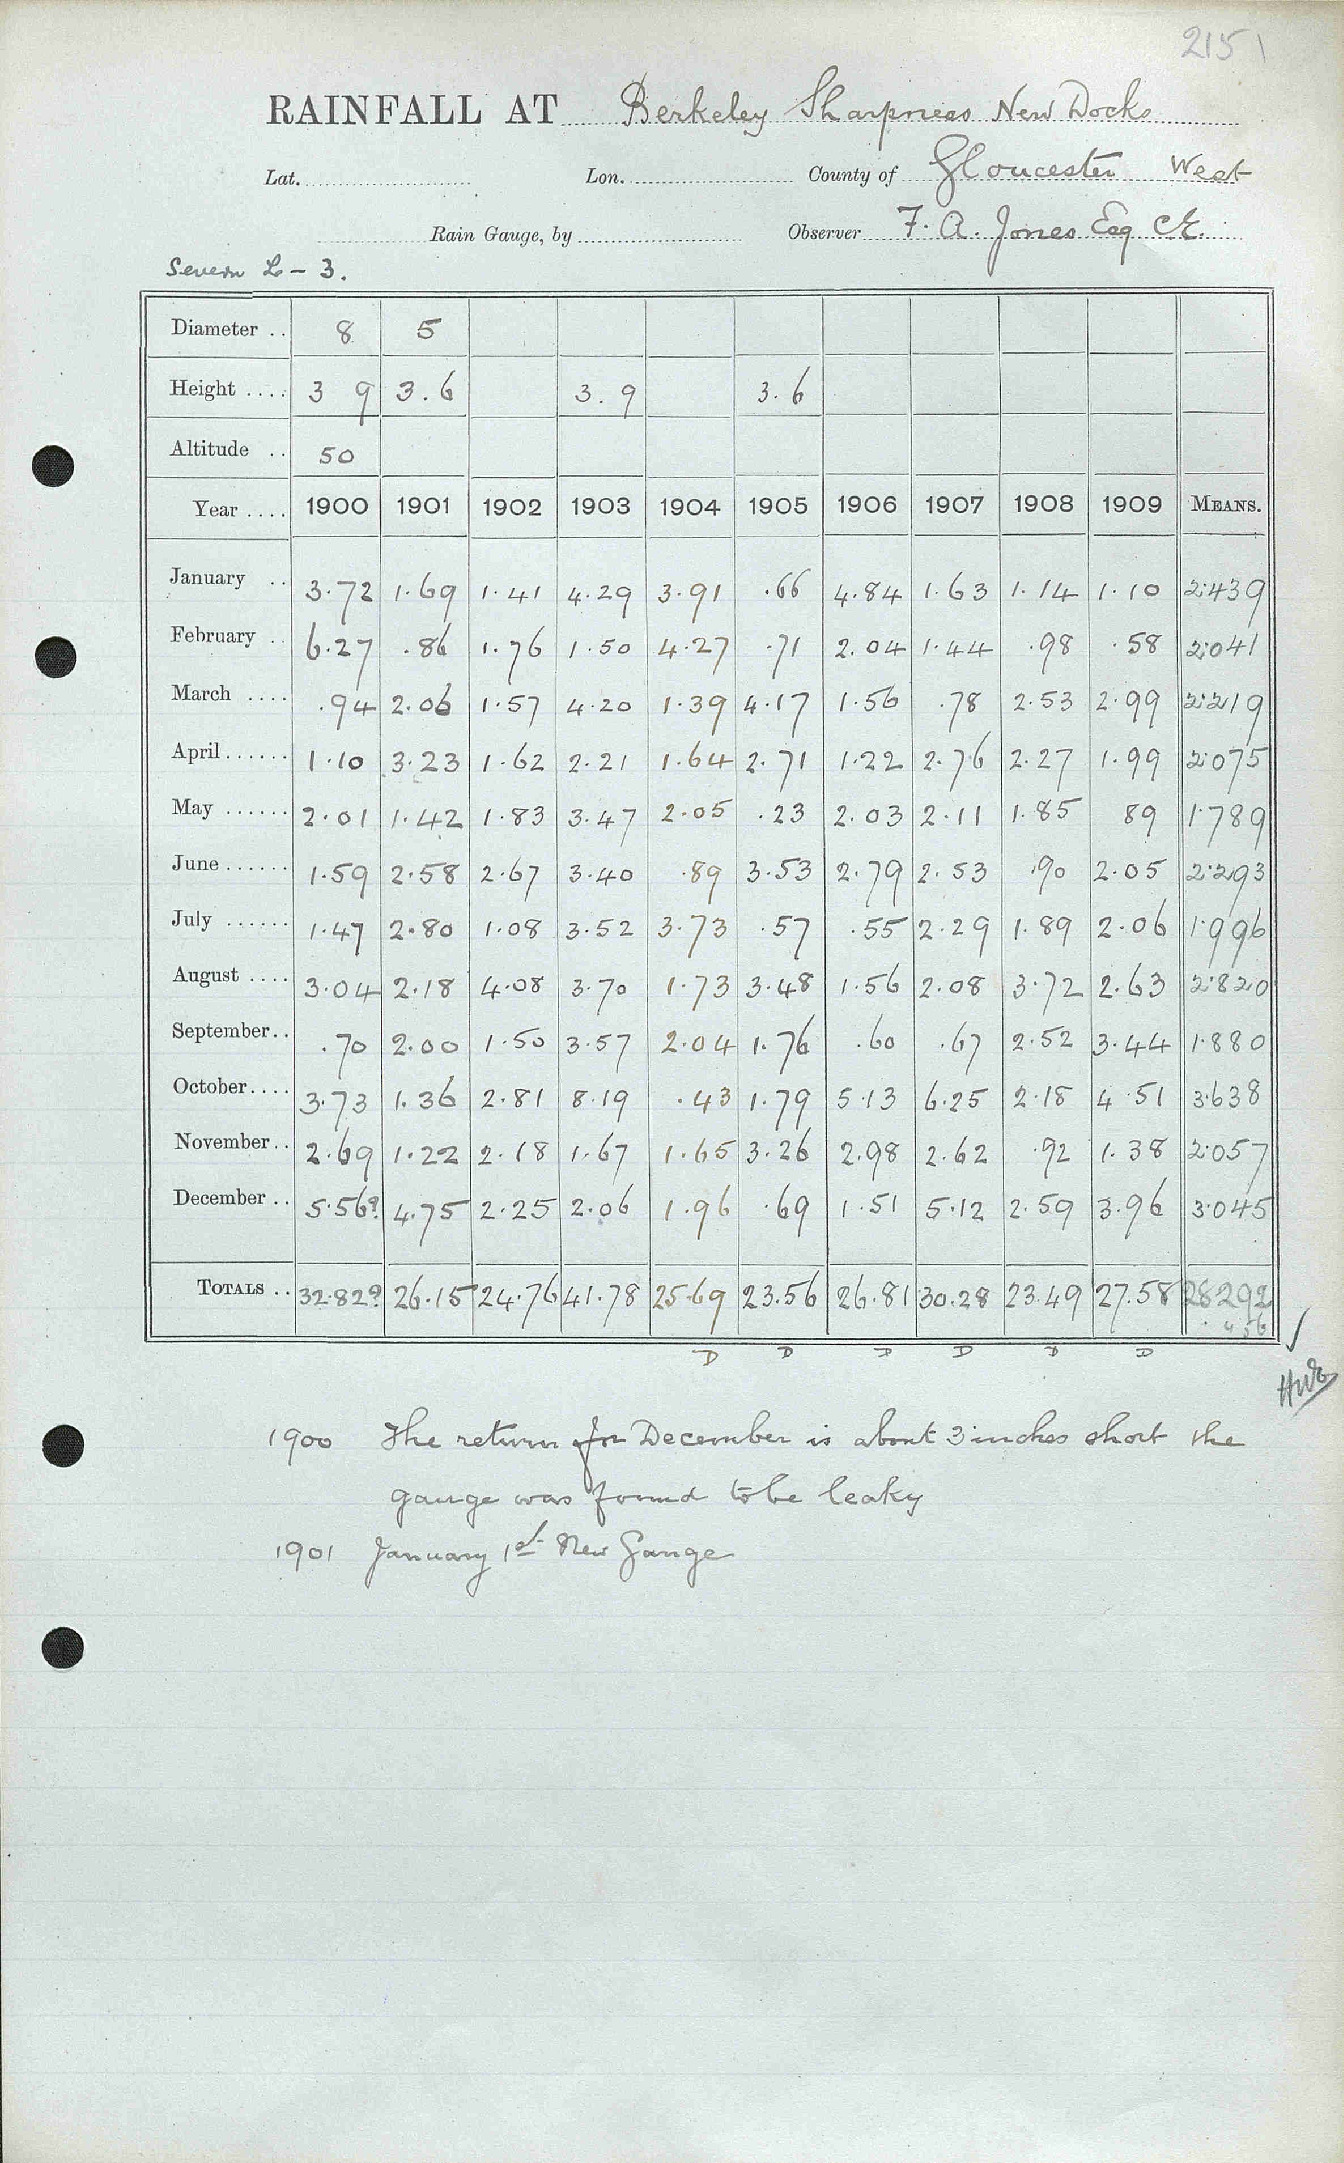 2151
RAINFALL AT Berkeley Sharpness New Docks
Lat. Lon. County of Gloucester West
Rain Gauge, by Observer F. A. Jones Esq CE.
Severn L - 3.
Diameter .. 8 5
Height .... 3 9 3.6 3.9 3.6
Altitude .. 50
Year .... 1900 1901 1902 1903 1904 1905 1906 1907 1908 1909 MEANS.
January .. 3.72 1.69 1.41 4.29 3.91 .66 4.84 1.63 1.14 1.10 2.439
February .. 6.27 .86 1.76 1.50 4.27 .71 2.04 1.44 .98 .58 2.041
March .... .94 2.06 1.57 4.20 1.39 4.17 1.56 .78 2.53 2.99 2.219
April...... 1.10 3.23 1.62 2.21 1.64 2.71 1.22 2.76 2.27 1.99 2.075
May ...... 2.01 1.42 1.83 3.47 2.05 .23 2.03 2.11 1.85 89 1.789
June...... 1.59 2.58 2.67 3.40 .89 3.53 2.79 2.53 .90 2.05 2.293
July ...... 1.47 2.80 1.08 3.52 3.73 .57 .55 2.29 1.89 2.06 1.996
August .... 3.04 2.18 4.08 3.70 1.73 3.48 1.56 2.08 3.72 2.63 2.820
September.. .70 2.00 1.50 3.57 2.04 1.76 .60 .67 2.52 3.44 1.880
October.... 3.73 1.36 2.81 8.19 .43 1.79 5.13 6.25 2.18 4.51 3.638
November.. 2.69 1.22 2.18 1.67 1.65 3.26 2.98 2.62 .92 1.38 2.057
December .. 5.56? 4.75 2.25 2.06 1.96 .69 1.51 5.12 2.59 3.96 3.045
TOTALS .. 32.82? 26.15 24.76 41.78 25.69 23.56 26.81 30.28 23.49 27.58 28.292
D D D D D D
1900 The return for December is about 3 inches short the
gauge was found to be leaky
1901 January 1st New Gauge